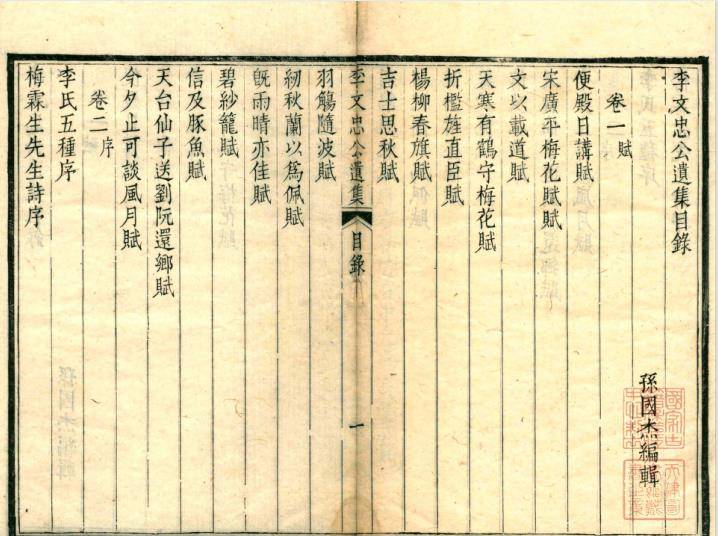 李文忠公遺集目錄
孫國杰編輯
卷一賦
便殿日講賦
宋廣平梅花賦賦
文以載道賦
天寒有鶴守梅花賦
折檻旌直臣賦
楊柳春旗賦
吉士思秋賦
李文忠公遺集 目錄 一
羽觴隨波賦
紉秋蘭以爲佩賦
旣雨晴亦佳賦
碧紗籠賦
信及豚魚賦
天台仙子送劉阮還鄉賦
今夕止可談風月賦
卷二序
李氏五種序
梅霖生先生詩序